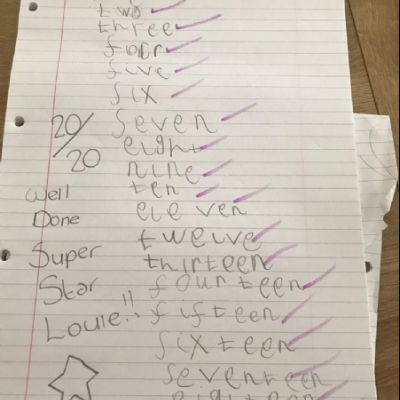 two
three
four
five
six
20/20
seven
eight
nine
ten
eleven
twelve
thirteen
fourteen
fifteen
sixteen
seventeen
eighteen
Well
Done
Super
Star
Louie!!